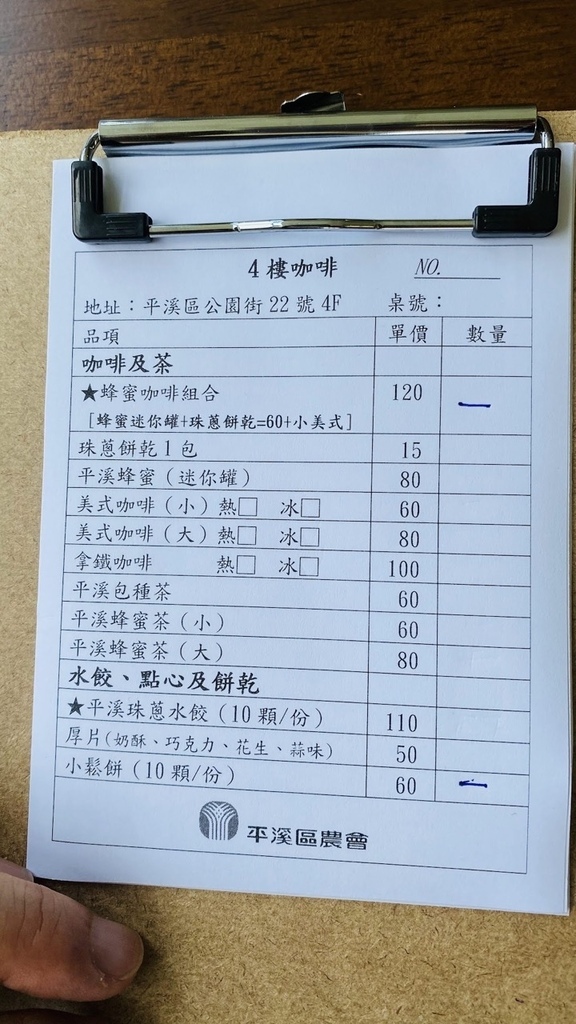 4樓咖啡 NO.
地址：平溪區公園街22號4F 桌號：
品項 單價 數量
咖啡及茶
★蜂蜜咖啡組合 120 一
[蜂蜜迷你罐+珠蔥餅乾=60+小美式]
珠蔥餅乾1包 15
平溪蜂蜜（迷你罐） 80
美式咖啡（小）熱□ 冰□ 60
美式咖啡（大）熱□ 冰□ 80
拿鐵咖啡 熱□ 冰□ 100
平溪包種茶 60
平溪蜂蜜茶（小） 60
平溪蜂蜜茶（大） 80
水餃、點心及餅乾
★平溪珠蔥水餃（10顆/份） 110
厚片（奶酥、巧克力、花生、蒜味） 50
小鬆餅（10顆/份） 60 一
平溪區農會